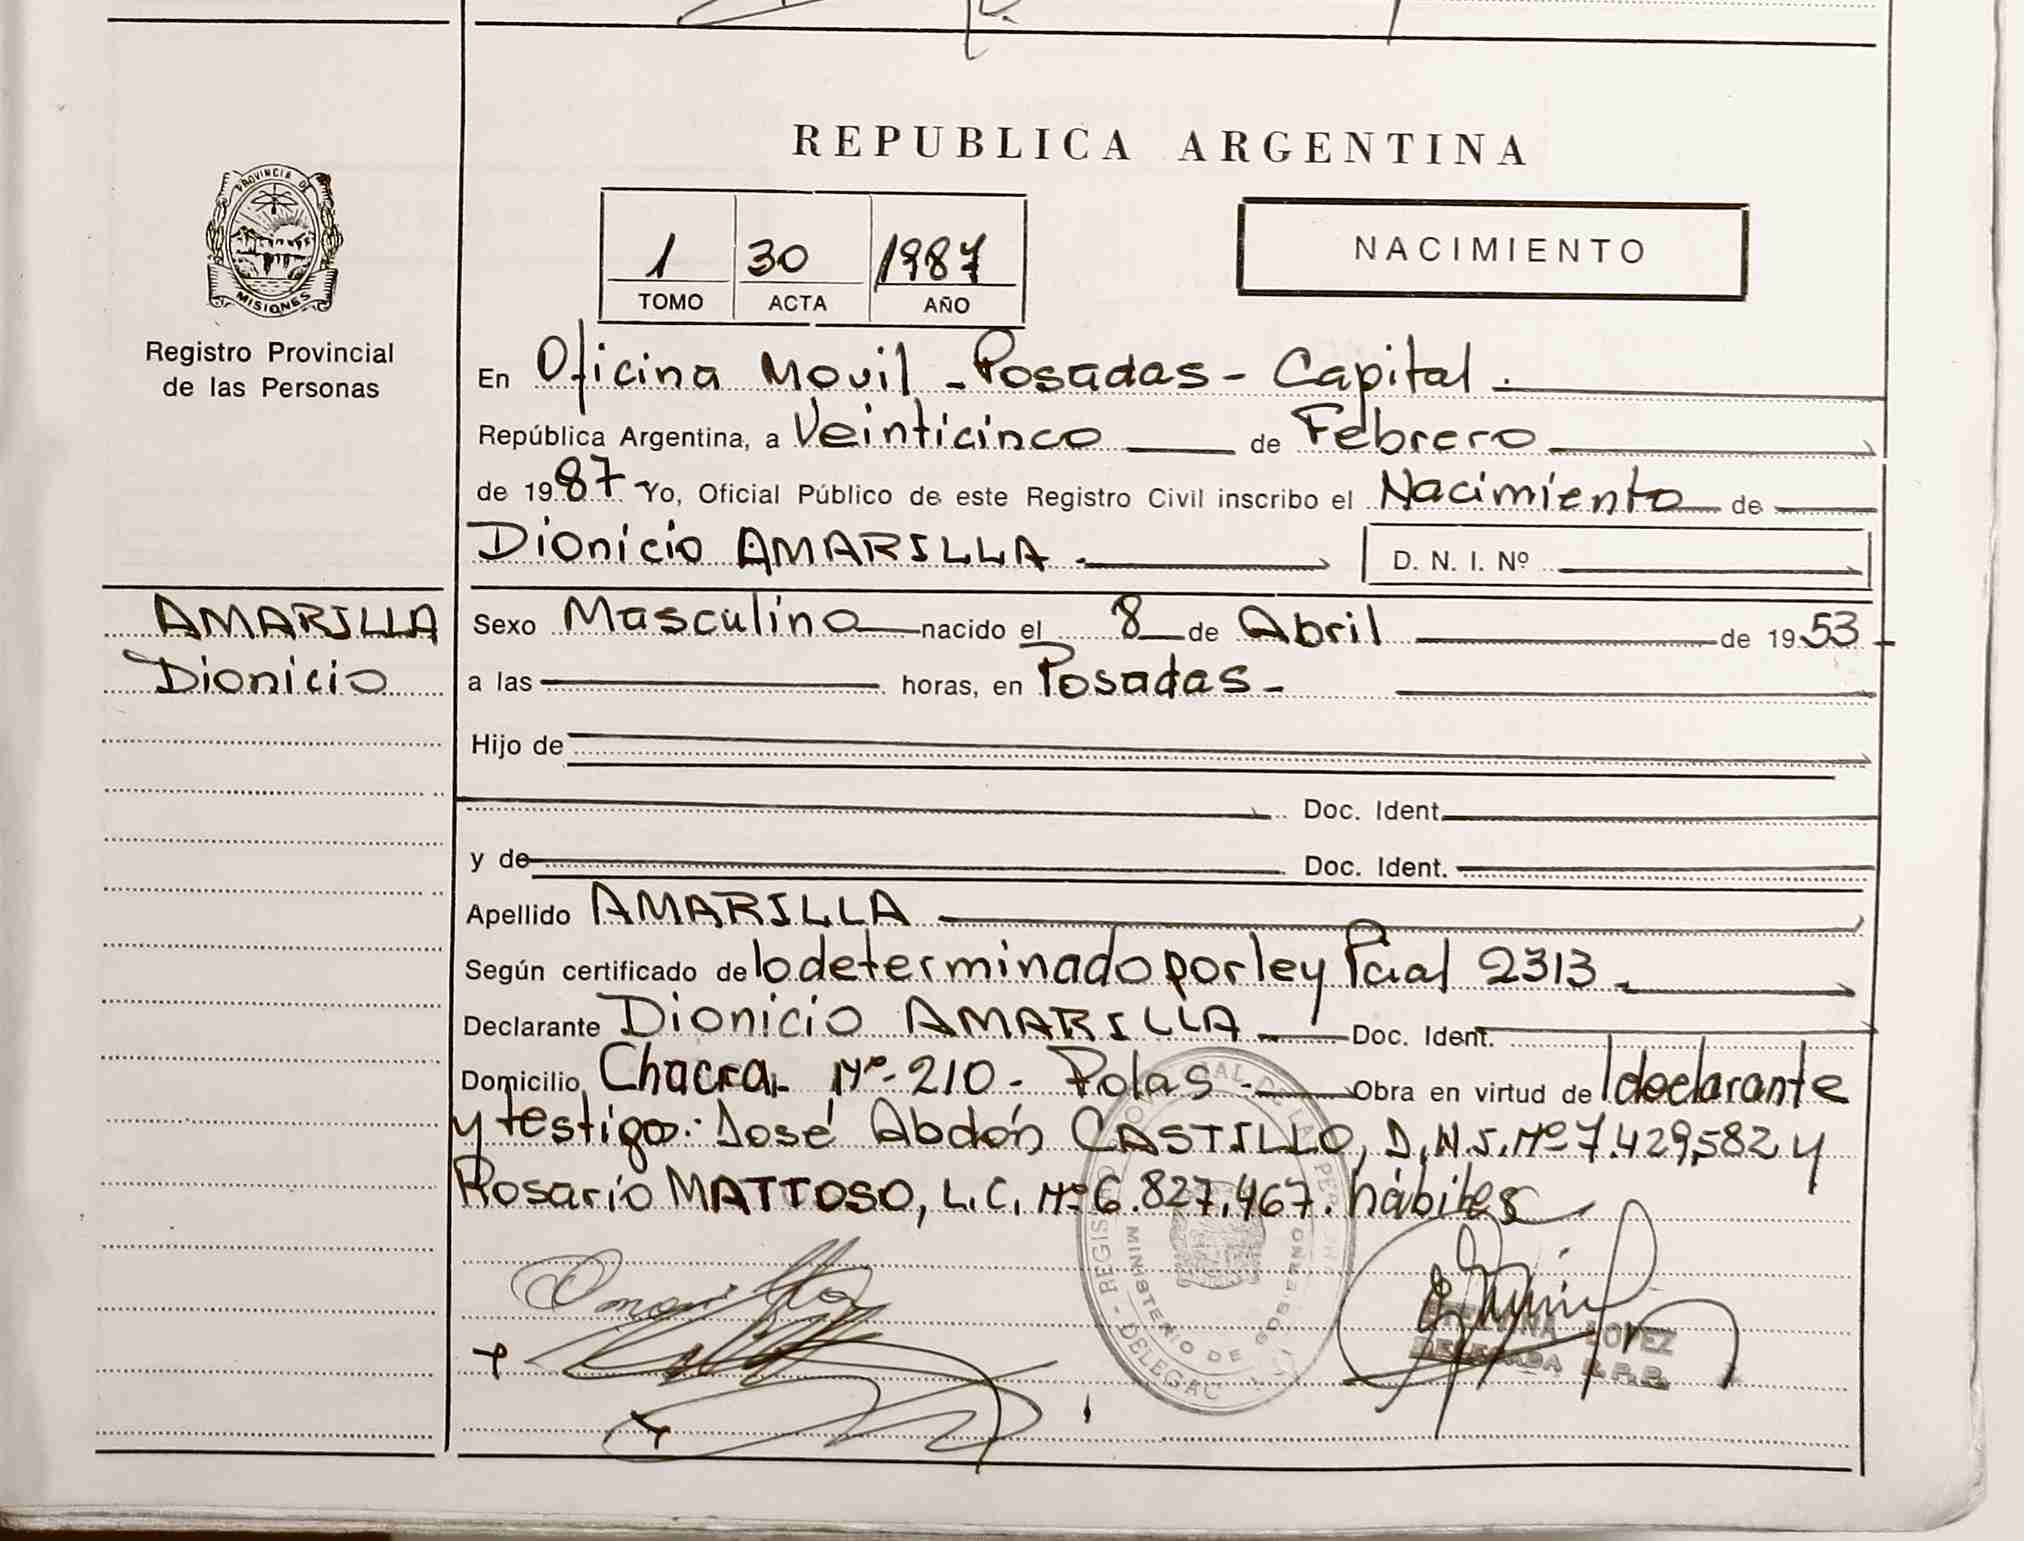 REPUBLICA ARGENTINA
PROVINCIA DE
MISIONES
Registro Provincial
de las Personas
1 30 1987
TOMO ACTA AÑO
NACIMIENTO
En Oficina Movil - Posadas - Capital.
República Argentina, a Veinticinco de Febrero
de 1987 Yo, Oficial Público de este Registro Civil inscribo el Nacimiento de
Dionicio AMARILLA. D. N. I. Nº
AMARILLA
Dionicio
Sexo Masculino nacido el 8 de Abril de 1953
a las horas, en Posadas-
Hijo de
Doc. Ident.
y de Doc. Ident.
Apellido AMARILLA
Según certificado de lo determinado por ley Pcial 2313
Declarante Dionicio AMARILLA Doc. Ident.
Domicilio Chacra Nº 210 - Pdas - Obra en virtud de l declarante
y testigos: José Abdón CASTILLO, D.N.I. Nº 7.429,582 y
Rosario MATTOSO, L.C. Nº 6.827.467. hábiles
MINISTERIO DE GOBIERNO
LOPEZ
DELEGADA R.P.P.